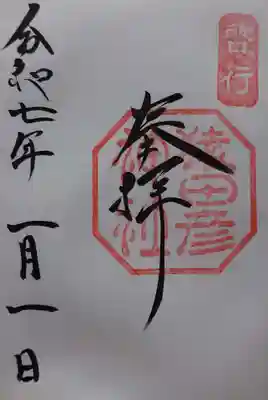 啓行
奉拝
猿田彦
神社
令和七年 一月一日